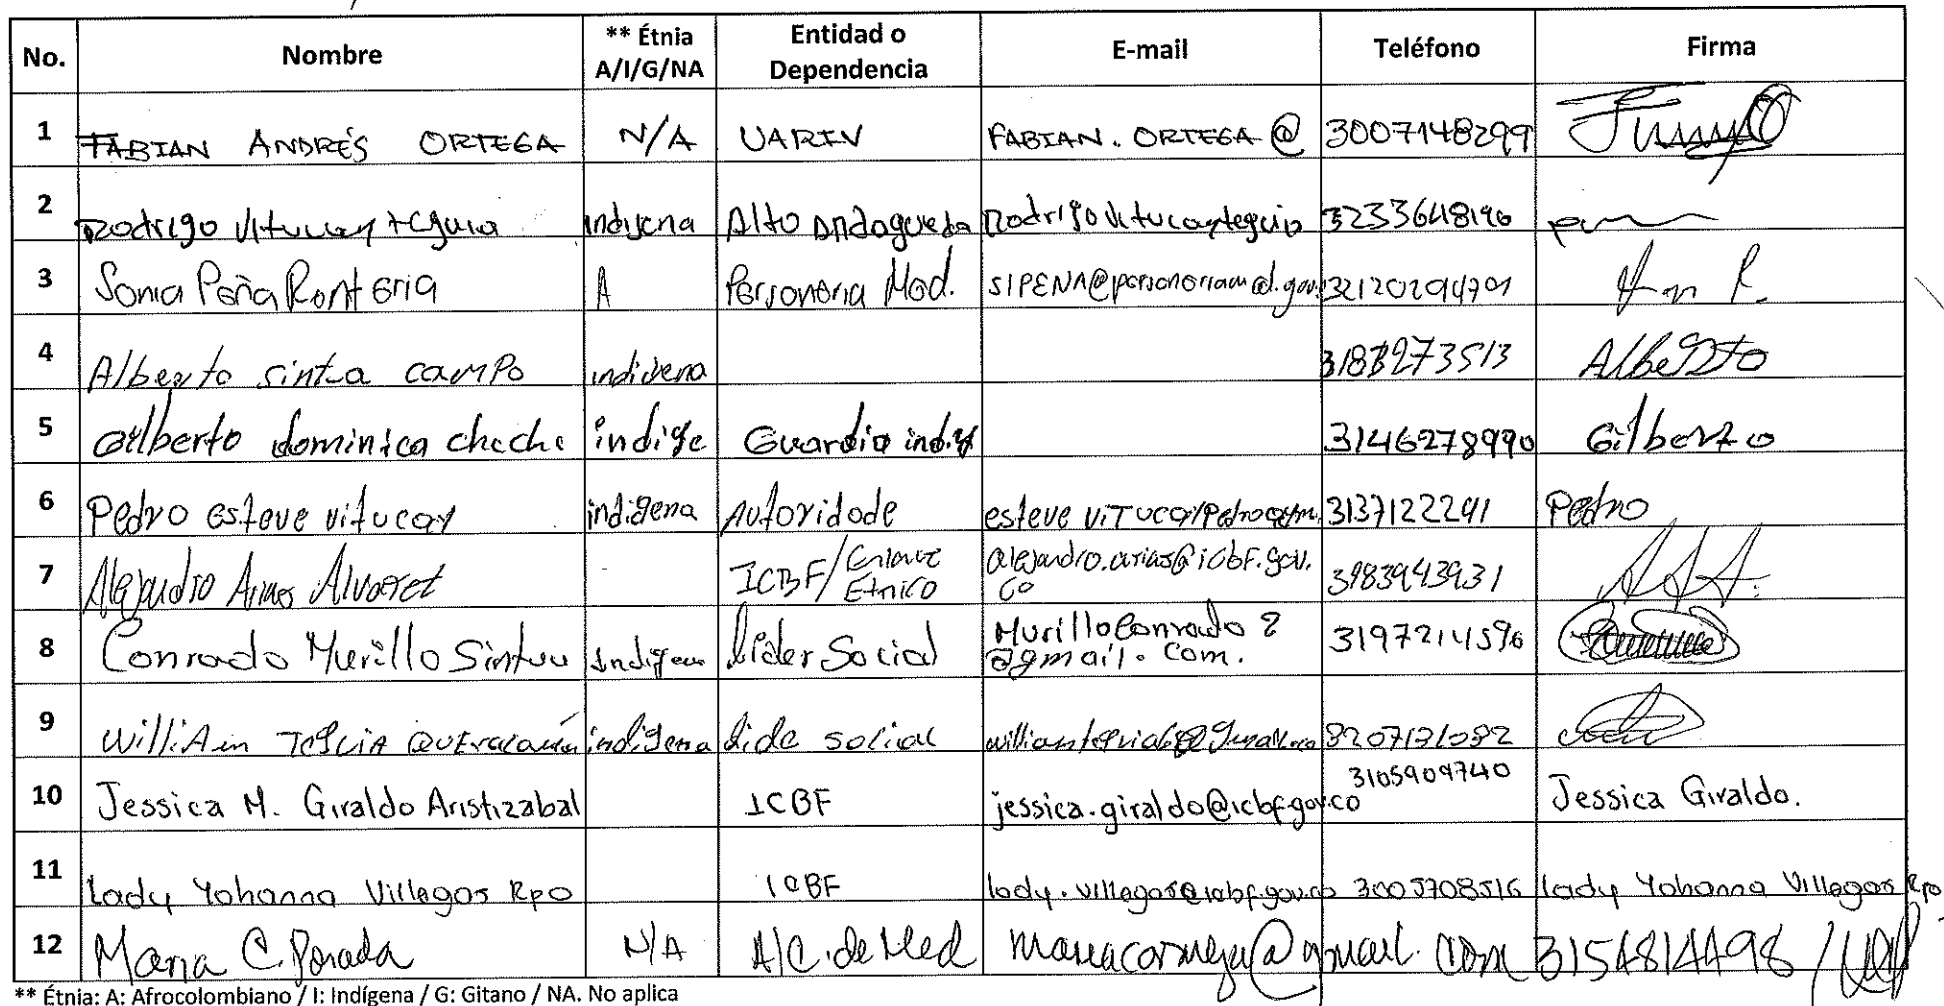 No. Nombre ** Étnia A/I/G/NA Entidad o Dependencia E-mail Teléfono Firma
1 FABIAN ANDRÉS ORTEGA N/A UARIV FABIAN.ORTEGA@ 3007148299
2 Rodrigo Vitucay tequia indijena Alto Andagueda Rodrigo Vitucaytequia 3233648190
3 Sonia Peña Rentería A Personería Med. SIPENA@personeriamed.gov.
4 Alberto sintua camPo indivena 3183273513 AlbeRto
5 Gilberto dominica cheche indige Guardia indig 3146278990 Gilberto
6 Pedro esteve vitucay indigena Autoridade esteve viTucay 3137122291 Pedro
7 Alejandro Arias Alvarez - ICBF/Enlace Etnico alejandro.arias@icbf.gov.co
8 Conrado Murillo Sintua Indigena Líder Social MurilloConrado2@gmail.com. 3197214596
9 williAm TeQuiA indigena lide social
10 Jessica M. Giraldo Aristizabal ICBF jessica.giraldo@icbf.gov.co 3105909740 Jessica Giraldo.
11 Lady Yohanna Villegas Rpo ICBF lady.villegas@icbf.gov.co 3005708516 Lady Yohanna Villegas Rpo
12 Maria C. N/A A/C. de Med @gmail.com 3154814498
** Étnia: A: Afrocolombiano / I: Indígena / G: Gitano / NA. No aplica